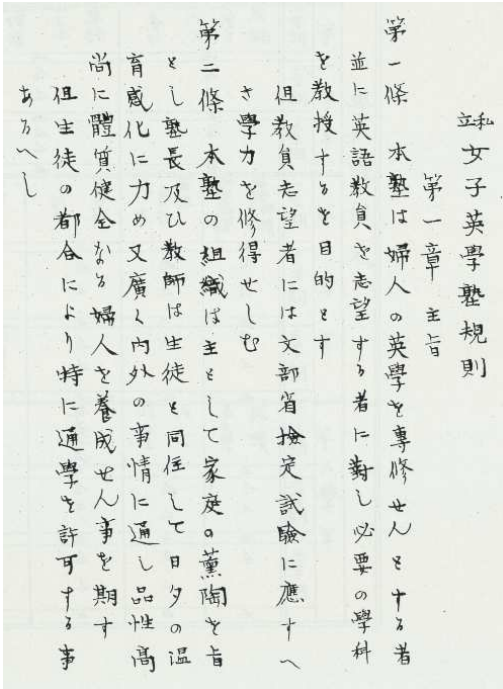 私立女子英學塾規則
第一章 主旨
第一條 本塾は婦人の英學を專修せんとする者
並に英語教員を志望する者に對し必要の學科
を教授するを目的とす
但教員志望者には文部省檢定試驗に應すへ
き學力を修得せしむ
第二條 本塾の組織は主として家庭の薫陶を旨
とし塾長及ひ教師は生徒と同住して日夕の温
育感化に力め又廣く内外の事情に通し品性高
尚に體質健全なる婦人を養成せん事を期す
但生徒の都合により時に通學を許可する事
あるへし